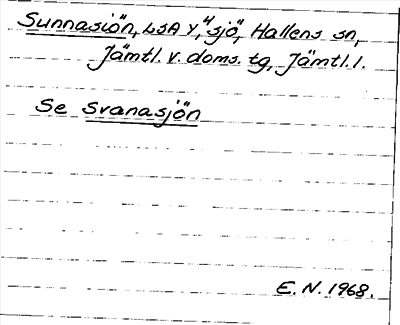 Sunnasjön, LSA Y, "sjö", Hallens sn,
Jämtl. v. doms. tg, Jämtl. l.
Se Svanasjön
E. N. 1968.